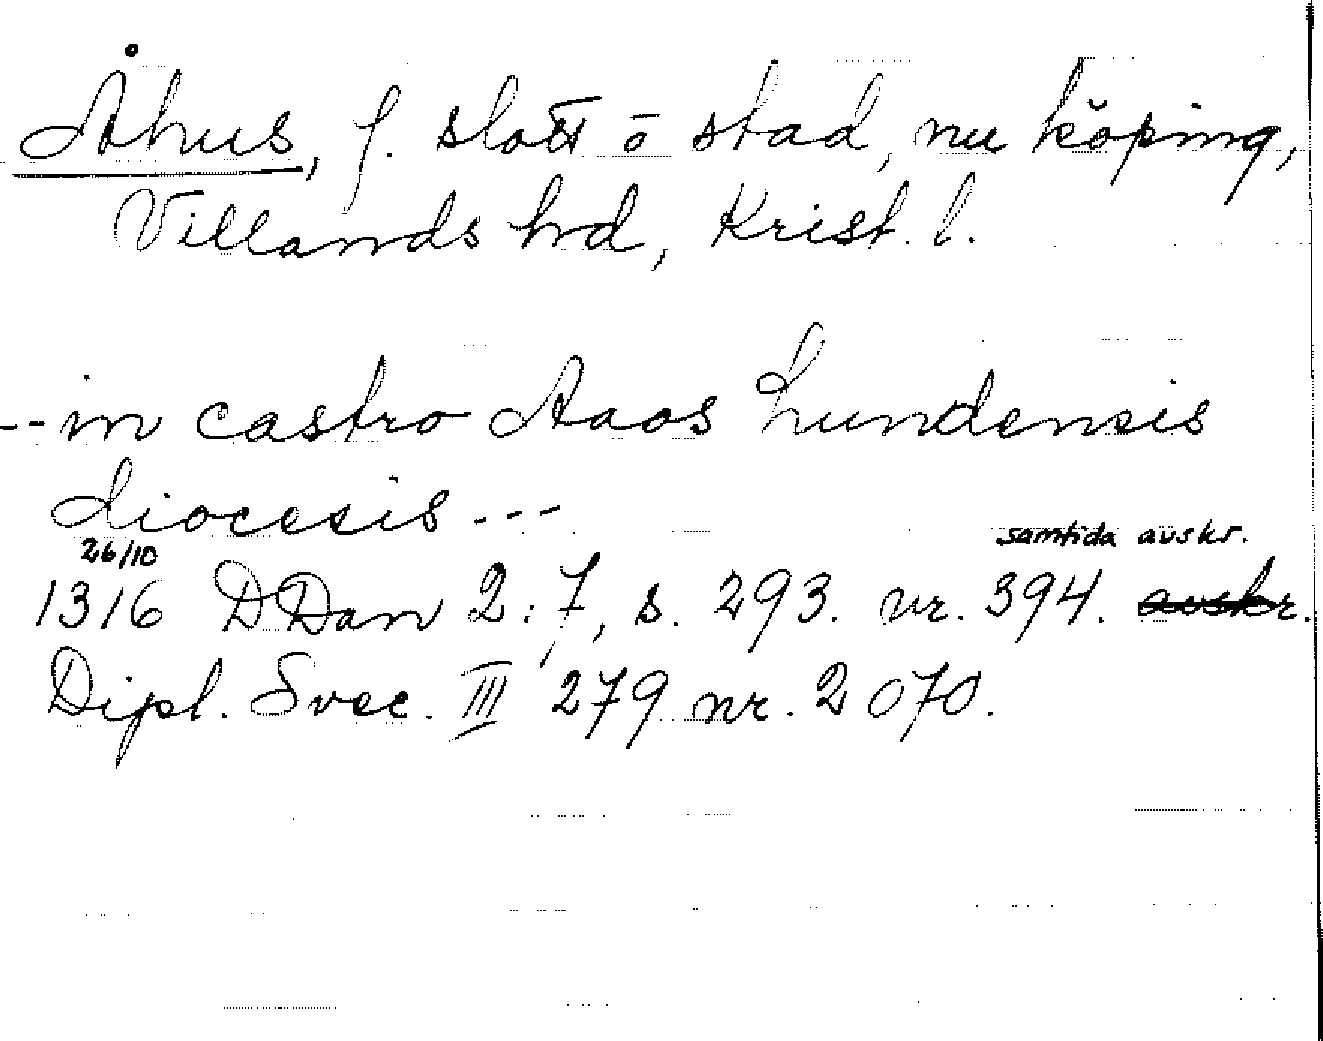 Åhus, f. slott ō stad, nu köping,
Villands hd, Krist. l.
--in castro Aaos Lundensis
diocesis ---
26/10 samtida avskr.
1316 DDan 2:7, s. 293. nr. 394. avskr.
Dipl. Svec. III 279 nr. 2070.